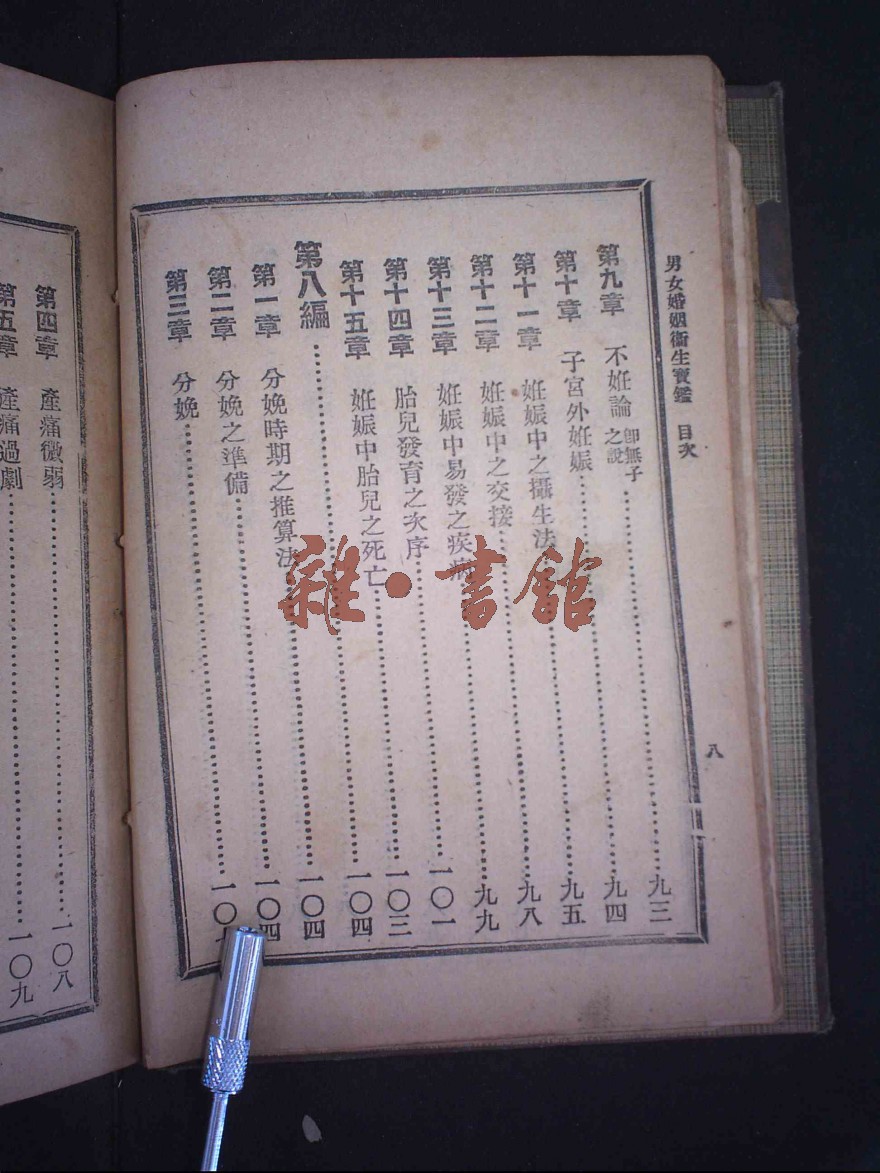 男女婚姻衞生寶鑑 目次 八
第九章 不妊論 即無子之說……九三
第十章 子宮外妊娠……九四
第十一章 妊娠中之攝生法……九五
第十二章 妊娠中之交接……九八
第十三章 妊娠中易發之疾病……九九
第十四章 胎兒發育之次序……一〇一
第十五章 妊娠中胎兒之死亡……一〇三
第八編……一〇四
第一章 分娩時期之推算法……一〇四
第二章 分娩之準備……一〇四
第三章 分娩……一〇
第四章 產痛微弱……一〇八
第五章 產痛過劇……一〇九
雜·書館